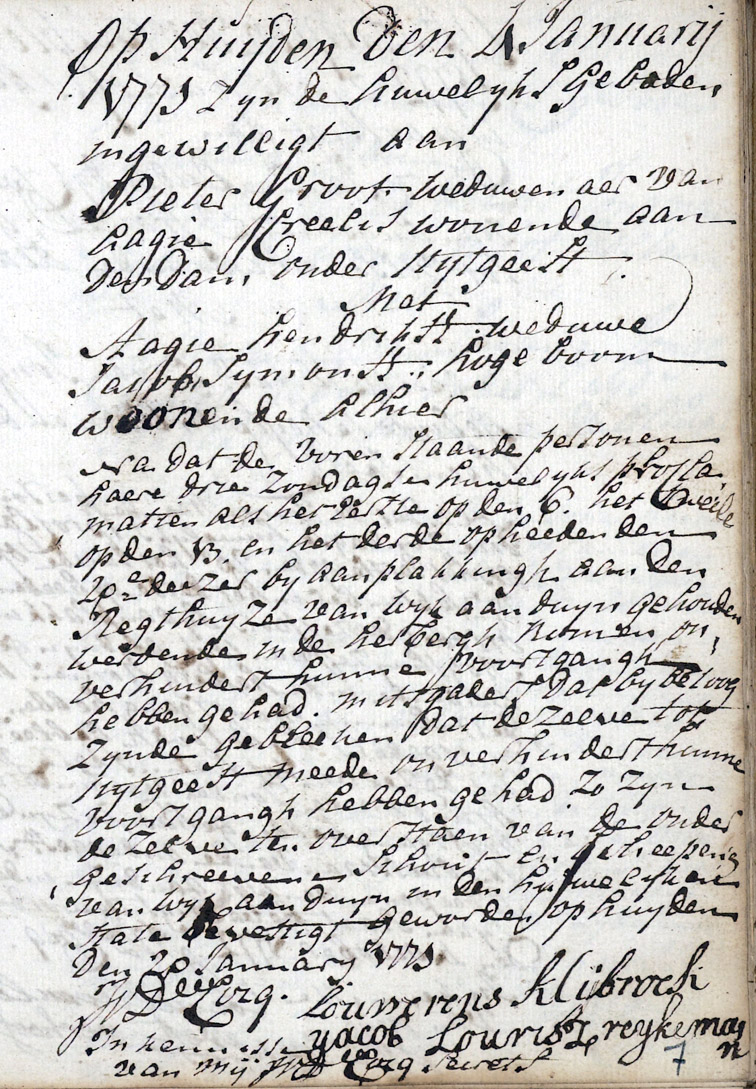 Op Huijden Den 4 Januarij
1771 Zyn de huwelyks Geboden
ingewilligt aan
Pieter Groot weduwenaer van
aagie Kreelis wonende aan
Den Dam onder Uytgeest
Met
Aagie hendrikss weduwe
Jacob Symonss hoge boom
woonende Alhier
Na dat de Voren staande personen
haere drie Zondagse huwelyks procla
matien als het Eerste op den 6. het tweede
op den 13. en het derde op heeden den
20e deezer by aanplakkingh aan den
Regthuyze van Wyk aan duyn gehouden
werdende in de herbergh Romen on
verhindert hunne Voortgangh
hebben gehad. mitsgaders Dat by betoog
Zynde gebleeken Dat dezelve tot
Uytgeest meede onverhindert hunne
Voortgangh hebben gehad Zo Zyn
dezelve ten overstaen van de onder
geschreevene Schout en Scheepens
van Wyk aan Duyn in den huwelyken
State bevestigt geworden op huyden
Den 20 January 1771
Louwerens Klijbroek
yacob Louriszreykeman
In kennisse
van Mij Secrets
7